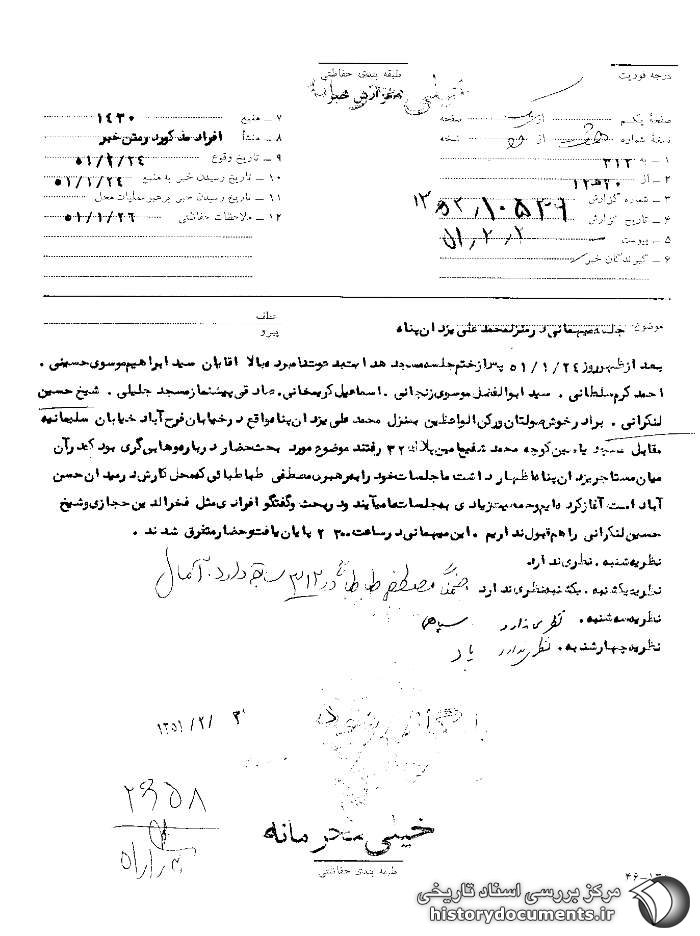 درجه فوریت
طبقه بندی حفاظتی
صفحهٔ یکم از یک صفحه
نسخهٔ شماره از نسخه
۱ ـ به ۳۱۲
۲ ـ از ۱۲ ه‍ ۲۰
۳ ـ شماره گزارش
۴ ـ تاریخ گزارش ۵۱/۲/۲
۵ ـ پیوست
۶ ـ گیرندگان خبر
۷ ـ منبع ۱۴۳۰
۸ ـ منشأ افراد مذکور در متن خبر
۹ ـ تاریخ وقوع ۵۱/۱/۲۴
۱۰ ـ تاریخ رسیدن خبر به منبع ۵۱/۱/۲۴
۱۱ ـ تاریخ رسیدن خبر برهبر عملیات محل
۱۲ ـ ملاحظات حفاظتی ۵۱/۱/۲۶
موضوع: جلسه میهمانی در منزل محمد علی یزدان پناه
عطف
پیرو
بعد از ظهر روز ۵۱/۱/۲۴ پس از ختم جلسه مسجد هدا عده نامبرد بالا اقایان سید ابراهیم موسوی حسینی .
احمد کرم سلطانی . سید ابوالفضل موسوی زنجانی . اسماعیل کریمخانی . صادقی پیشنماز مسجد جلیلی . شیخ حسین
لنکرانی . برادر خوش صولتان و رکن الواعظین بمنزل محمد علی یزدان پناه واقع در خیابان فرح آباد خیابان سلیمانیه
مقابل مسجد یاسین کوچه محمد شفیعا مین پلاک ۳۲ رفتند موضوع مورد بحث حضار درباره وهابی گری بود که در آن
میان مستاجر یزدان پناه اظهار داشت ما جلسات خود را به رهبری مصطفی طباطبائی که محل کارش در میدان حسن
آباد است آغاز کرده ایم و جمعیت زیادی به جلسات ما میآیند و در بحث و گفتگو افرادی مثل فخرالدین حجازی و شیخ
حسین لنکرانی را هم قبول نداریم . این میهمانی در ساعت ۲۳۰۰ پایان یافت و حضار متفرق شدند .
نظریه شنبه . نظری ندارد
نظریه یکشنبه . یکشنبه نظری ندارد ضمناً مصطفی طباطبائی در ۳۱۲ سابقه دارد . آمال
نظریه سه شنبه . نظری ندارد سپاهی
نظریه چهارشنبه . نظری ندارد یاد
۱۳۵۱/۲/۳
۲۶۵۸
خیلی محرمانه
طبقه بندی حفاظتی
مرکز بررسی اسناد تاریخی
historydocuments.ir